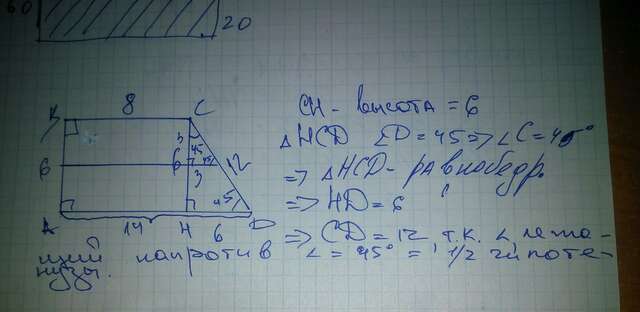 60
20
8
B C
3
45
6 6 45 12
3
45
A H D
14 6
CH - высота = 6
△HCD ∠D = 45 => ∠C = 45°
=> △HCD - равнобедр.
=> HD = 6
=> CD = 12 т.к. ∠, лежа-
щий напротив ∠ = 45° = 1/2 гипоте-
нузы.